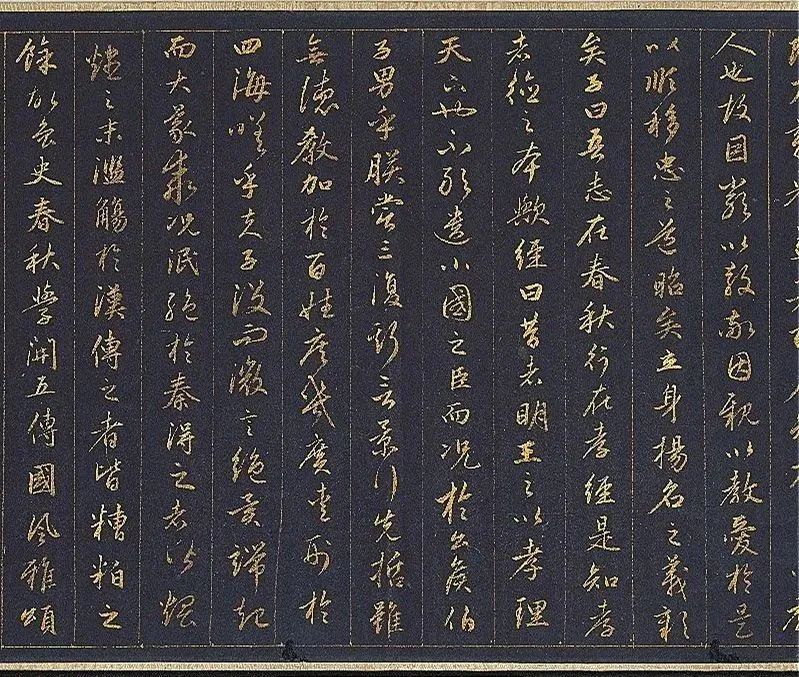 人也故因嚴以教敬因親以教愛於是
以順移忠之道昭矣立身揚名之義彰
矣子曰吾志在春秋行在孝經是知孝
者德之本歟經曰昔者明王之以孝理
天下也不敢遺小國之臣而况於公侯伯
子男乎朕嘗三復斯言景行先哲雖
無德教加於百姓庶幾廣愛刑於
四海嗟乎夫子没而微言絶異端起
而大義乖况泯絶於秦得之者皆煨
燼之末濫觴於漢傳之者皆糟粕之
餘故魯史春秋學開五傳國風雅頌